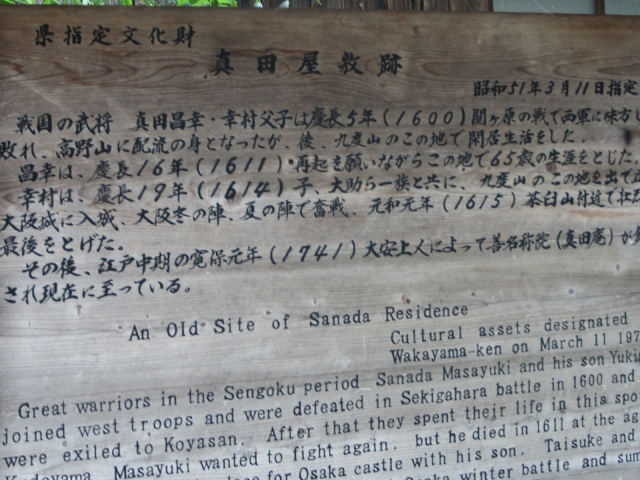 県指定文化財
真田屋敷跡
昭和51年3月11日指定
戦国の武将 真田昌幸・幸村父子は慶長5年(1600)関ヶ原の戦で西軍に味方し
敗れ、高野山に配流の身となったが、後、九度山のこの地で閑居生活をした。
昌幸は、慶長16年(1611)・再起を願いながらこの地で65歳の生涯をとじた。
幸村は、慶長19年(1614)子、大助ら一族と共に、九度山のこの地を出て
大阪城に入城、大阪冬の陣、夏の陣で奮戦、元和元年(1615)茶臼山付近で壮
最後をとげた。
その後、江戸中期の寛保元年(1741)大安上人によって善名称院(真田庵)が
され現在に至っている。
An Old Site of Sanada Residence
Cultural assets designated
Wakayama-ken on March 11 197
Great warriors in the Sengoku period Sanada Masayuki and his son Yuki
joined west troops and were defeated in Sekigahara battle in 1600 and
were exiled to Koyasan. After that they spent their life in this spo
Masayuki wanted to fight again, but he died in 1611 at the ag
for Osaka castle with his son. Taisuke and
winter battle and sum